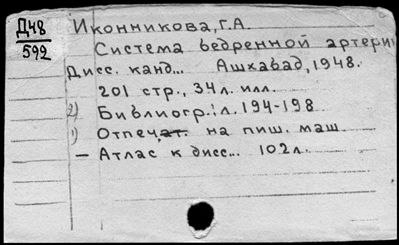 Д48
592
Иконникова, Г.А.
Система бедренной артерии
Дисс. канд... Ашхабад, 1948.
201 стр., 34 л. илл.
2) Библиогр.: л. 194-198
1) Отпечат. на пиш. маш.
— Атлас к дисс... 102 л.